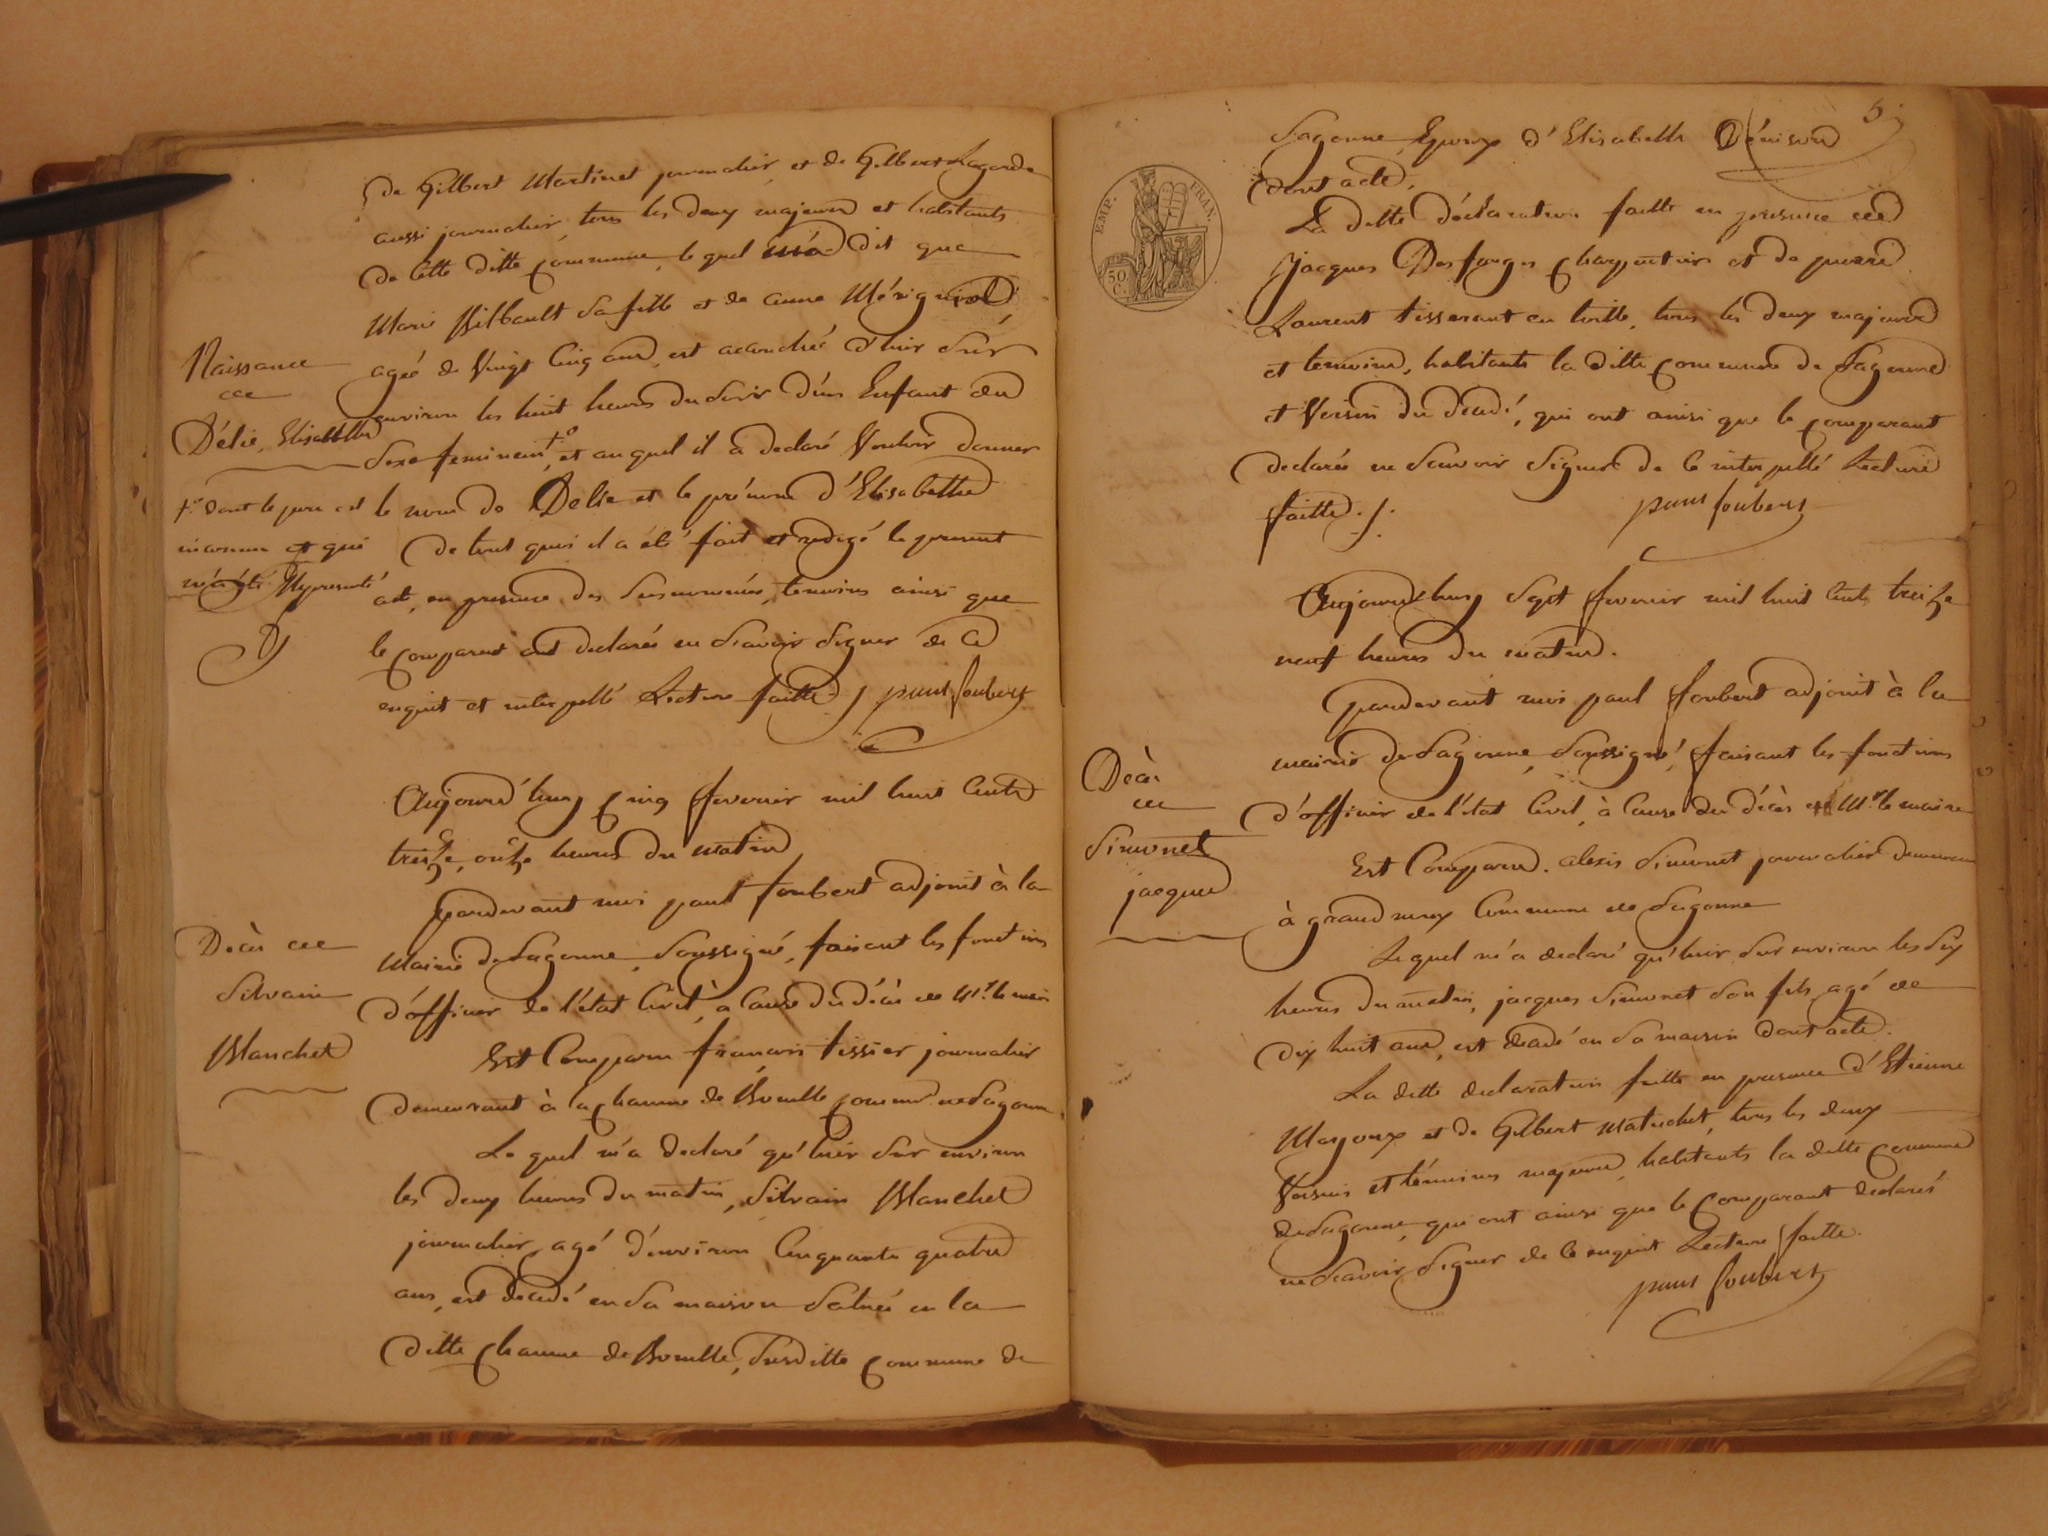 de Gilbert Martinet journalier, et de Gilbert Lagarde
aussi journalier, tous les deux majeurs et habitants
de cette ditte commune, le quel m'a dit que
Marie Bilbault sa fille et de anne Mérignier
agée de Vingt Cinq ans, est acouchée d'hier Sur
environ les huit heures du Soir d'un Enfant du
Sexe feminein †°, et auquel il a declaré Vouloir donner
le nom de Délie et le prénom d'Elisabethe
De tout quoi il a été fait et redigé le present
act, en presence des Susnommés, temoins ainsi que
le comparent ont declarés ne Scavoir Signer de ce
enquit et interpellé Lecture faitte. paul foubert
Naissance
de
Délie, Elisabethe
†° dont le pere est
inconnu et qui
m'a été Représenté
Aujourd'huy Cinq fevrier mil huit Cents
treize, onze heures du matin
Pardevant moi paul foubert adjoint à la
Mairie de Sagonne, Soussigné, faisant les fonctions
d'officier de l'état Civil, a Cause du décès de Mr. le maire
Est Comparu françois tissier journalier
demeurant à la chaume de Boulle commune de Sagonne
Le quel m'a declaré qu'hier Sur environ
les deux heures du matin, Silvain Blanchet
journalier, agé d'environ Cinquante quatre
ans, est decedé en Sa maison Scituée en la
ditte Chaume de Boulle, Susditte commune de
Décès de
Silvain
Blanchet
5
Sagonne, Epoux d'Elisabeth Dénison
dont acte.
La ditte déclaration faitte en presence de
Jacques Desforges charpentier et de pierre
Laurent tisserant en toille, tous les deux majeurs
et temoins, habitants la ditte commune de Sagonne
et Voisin du decedé, qui ont ainsi que le comparant
declarés ne Scavoir Signer de ce interpellé Lecture
faitte. paul foubert
EMP. FRAN.
50 C.
Aujourd'huy Sept fevrier mil huit Cents treize
neuf heures du matin.
Pardevant moi paul foubert adjoint à la
mairie de Sagonne, Soussigné, faisant les fonctions
d'officier de l'état Civil, à Cause du décès de Mr. le maire
Est Comparu. alexis Simonet journalier demeurant
à grand Commune de Sagonne
Lequel m'a declaré qu'hier Sur environ les Six
heures du matin, jacques Simonet Son fils agé de
dix huit ans, est decedé en Sa maison dont acte.
La ditte declaration faitte en presence d'Etienne
Majoux et de Gilbert Matuchet, tous les deux
Voisins et témoins majeurs, habitants la ditte commune
de Sagonne, qui ont ainsi que le comparant declarés
ne Scavoir Signer de ce enquit Lecture faitte.
paul foubert
Décès
de
Simonet
jacques